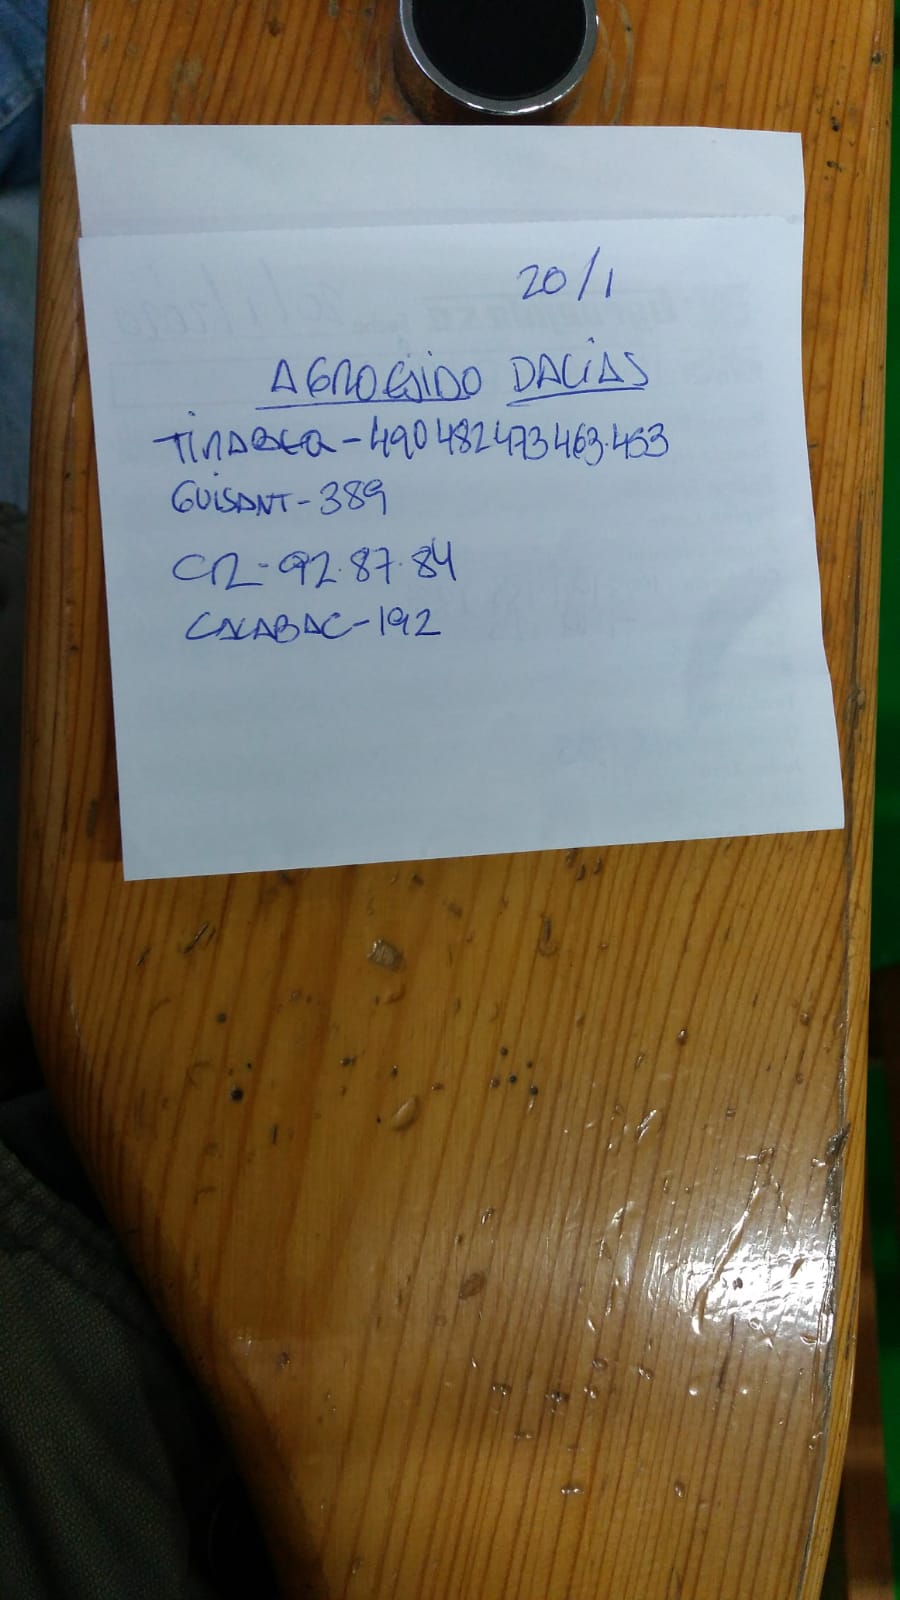 20/1
AGROEJIDO DALÍAS
TIRABEQ-490 482 473 463.453
GUISANT-389
CR-92.87.84
CALABAC-192